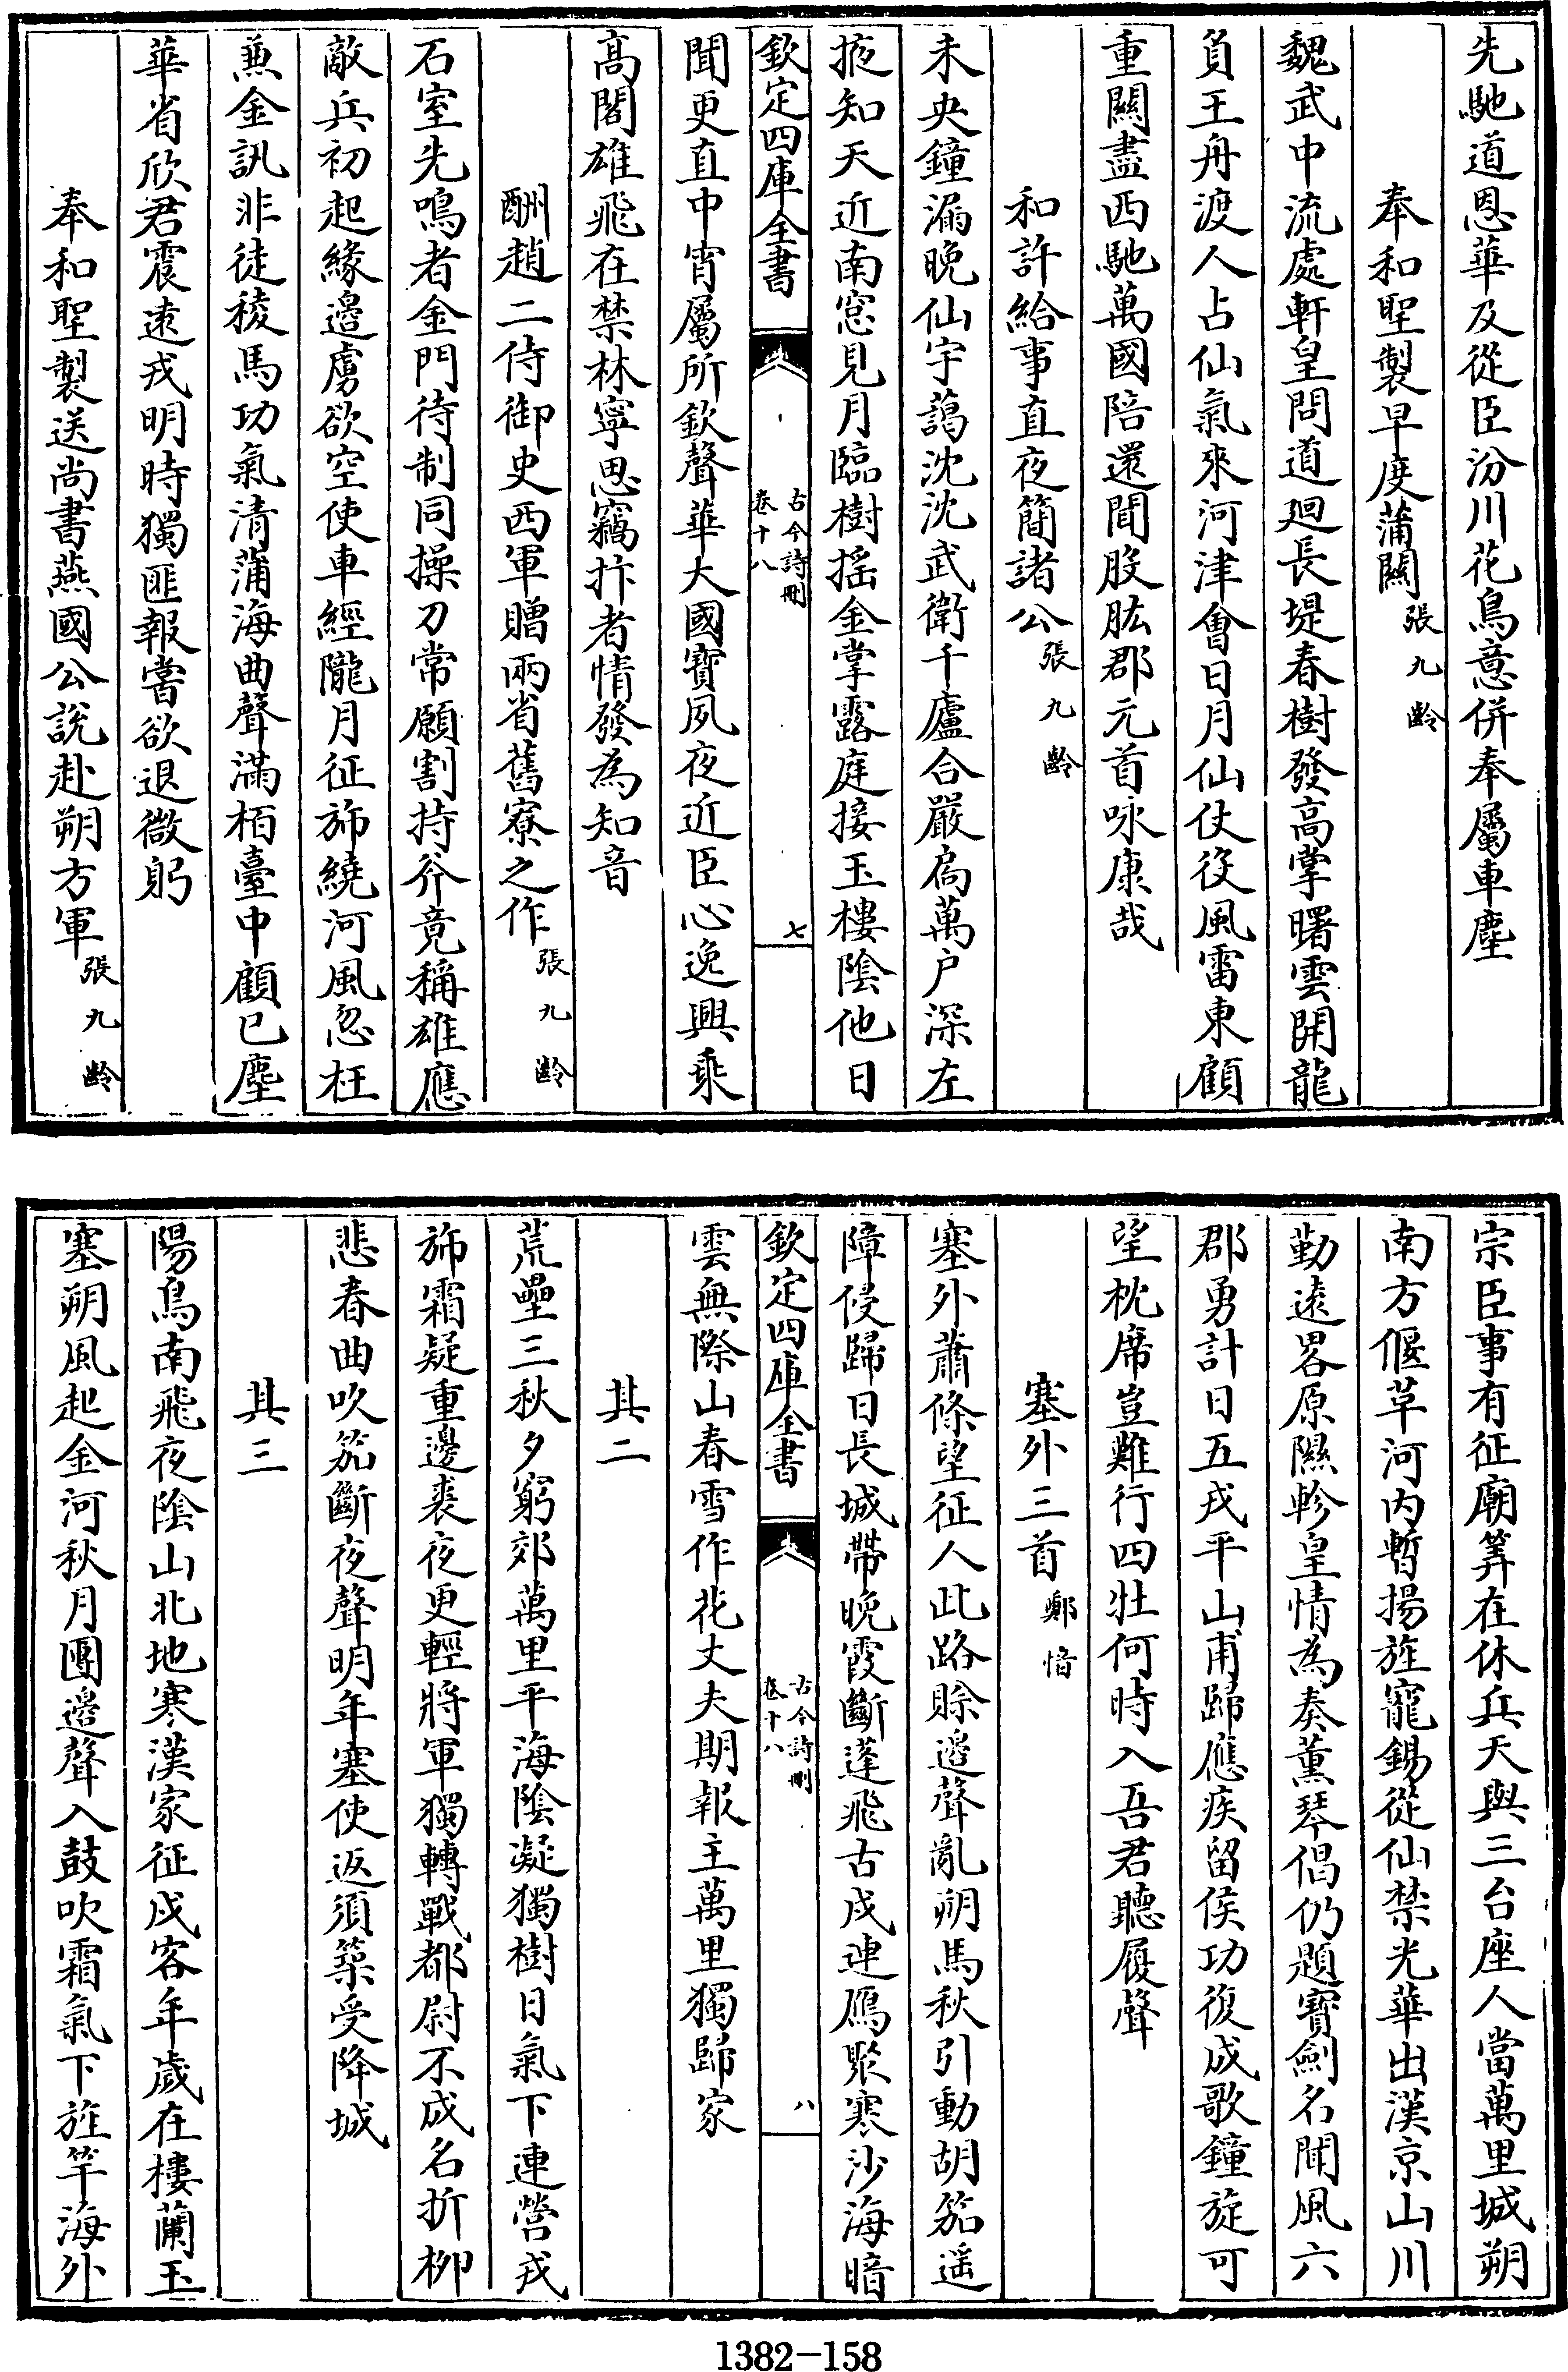 先馳道恩華及從臣汾川花鳥意併奉屬車塵
奉和聖製早度蒲關張九齡
魏武中流處軒皇問道廻長堤春樹發高掌曙雲開龍
負王舟渡人占仙氣來河津會日月仙仗役風雷東顧
重關盡西馳萬國陪還聞股肱郡元首咏康哉
和許給事直夜簡諸公張九齡
未央鐘漏晚仙宇藹沈沈武衛千廬合嚴扃萬户深左
掖知天近南窓見月臨樹揺金掌露庭接玉樓陰他日
欽定四庫全書
古今詩刪
卷十八
七
聞更直中宵屬所欽聲華大國寶夙夜近臣心逸興乘
高閣雄飛在禁林寧思竊抃者情發為知音
酬趙二侍御史西軍贈兩省舊寮之作張九齡
石室先鳴者金門待制同操刀常願割持斧竟稱雄應
敵兵初起緣邊虜欲空使車經隴月征斾繞河風忽枉
蒹金訊非徒稜馬功氣清蒲海曲聲滿栢臺中顧已塵
華省欣君震逺戎明時獨匪報嘗欲退微躬
奉和聖製送尚書燕國公說赴朔方軍張九齡
宗臣事有征廟筭在休兵天與三台座人當萬里城朔
南方偃草河内暫揚旌寵錫從仙禁光華出漢京山川
勤逺畧原隰軫皇情為奏薰琴倡仍題寶劍名聞風六
郡勇計日五戎平山甫歸應疾留侯功復成歌鐘旋可
望枕席豈難行四牡何時入吾君聽履聲
塞外三首鄭愔
塞外蕭條望征人此路賒邉聲亂朔馬秋引動胡笳遥
障侵歸日長城帶晚霞斷蓬飛古戍連鴈聚寒沙海暗
欽定四庫全書
古今詩刪
卷十八
八
雲無際山春雪作花丈夫期報主萬里獨歸家
其二
荒壘三秋夕窮郊萬里平海陰凝獨樹日氣下連營戎
斾霜疑重邊裘夜更輕將軍獨轉戰都尉不成名折柳
悲春曲吹笳斷夜聲明年塞使返須築受降城
其三
陽鳥南飛夜陰山北地寒漢家征戍客年歲在樓蘭玉
塞朔風起金河秋月團邉聲入鼓吹霜氣下旌竿海外
1382-158